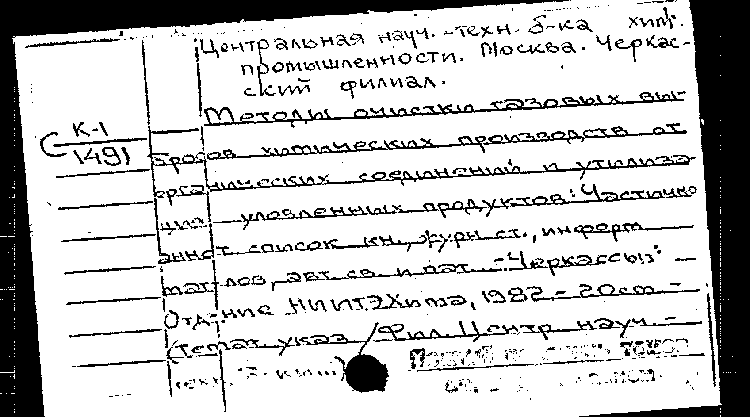 Центральная науч.-техн. б-ка хим.
промышленности. Москва. Черкас-
ский филиал.
Методы очистки газовых вы-
К-1
1491
бросов химических производств от
органических соединений и утилиза-
ции уловленных продуктов: Частично
аннот. список кн., журн. ст., информ.
мат-лов, авт. св. и пат. - Черкассы:
Отд-ние НИИТЭХима, 1982. - 20см. -
(Темат. указ / Фил. Центр. науч. -
техн. б-ки ...)